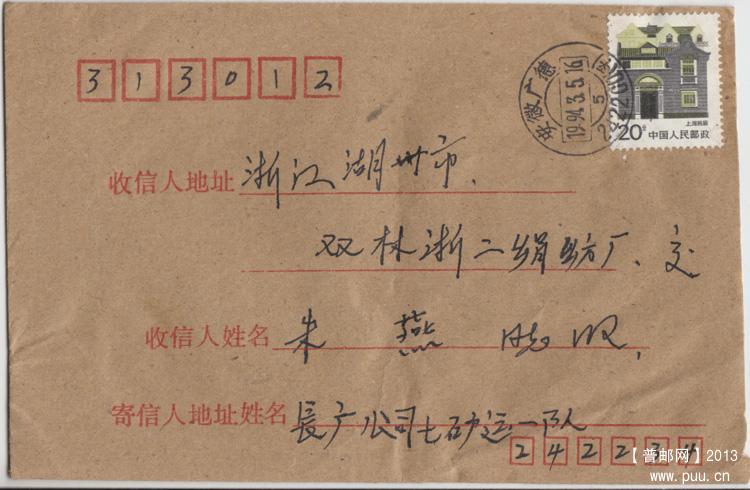 313012
安徽广德
1994.3.5.16
5
242200
(支)
上海民居
20分 中国人民邮政
收信人地址 浙江湖州市、
双林浙二绢纺厂、交
收信人姓名 朱 燕 同志 收,
寄信人地址姓名 長广公司七矿运一队
242234
【普邮网】2013
www.puu.cn